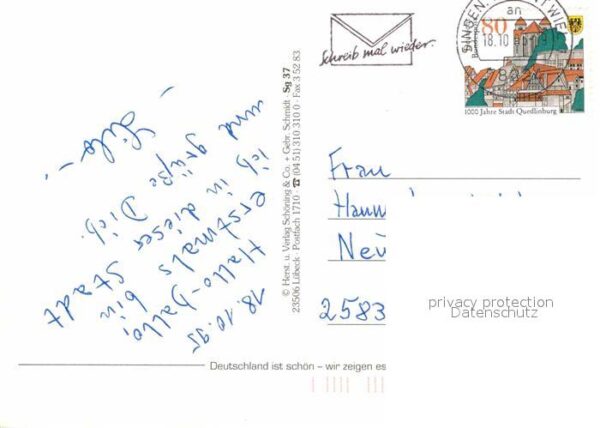 18.10.95
Hallo-hallo,
erstmals bin
ich in dieser Stadt
und grüße Dich.
- Lilo -
© Herst. u. Verlag Schöning & Co. + Gebr. Schmidt · Sg 37
23506 Lübeck · Postfach 1710 · ☎ (04 51) 310 310 0 · Fax 3 52 83
Schreib mal wieder.
SINGEN
18.10.95
80
1000 Jahre Stadt Quedlinburg
Frau
Hann
Neu
2583
privacy protection
Datenschutz
Deutschland ist schön – wir zeigen es